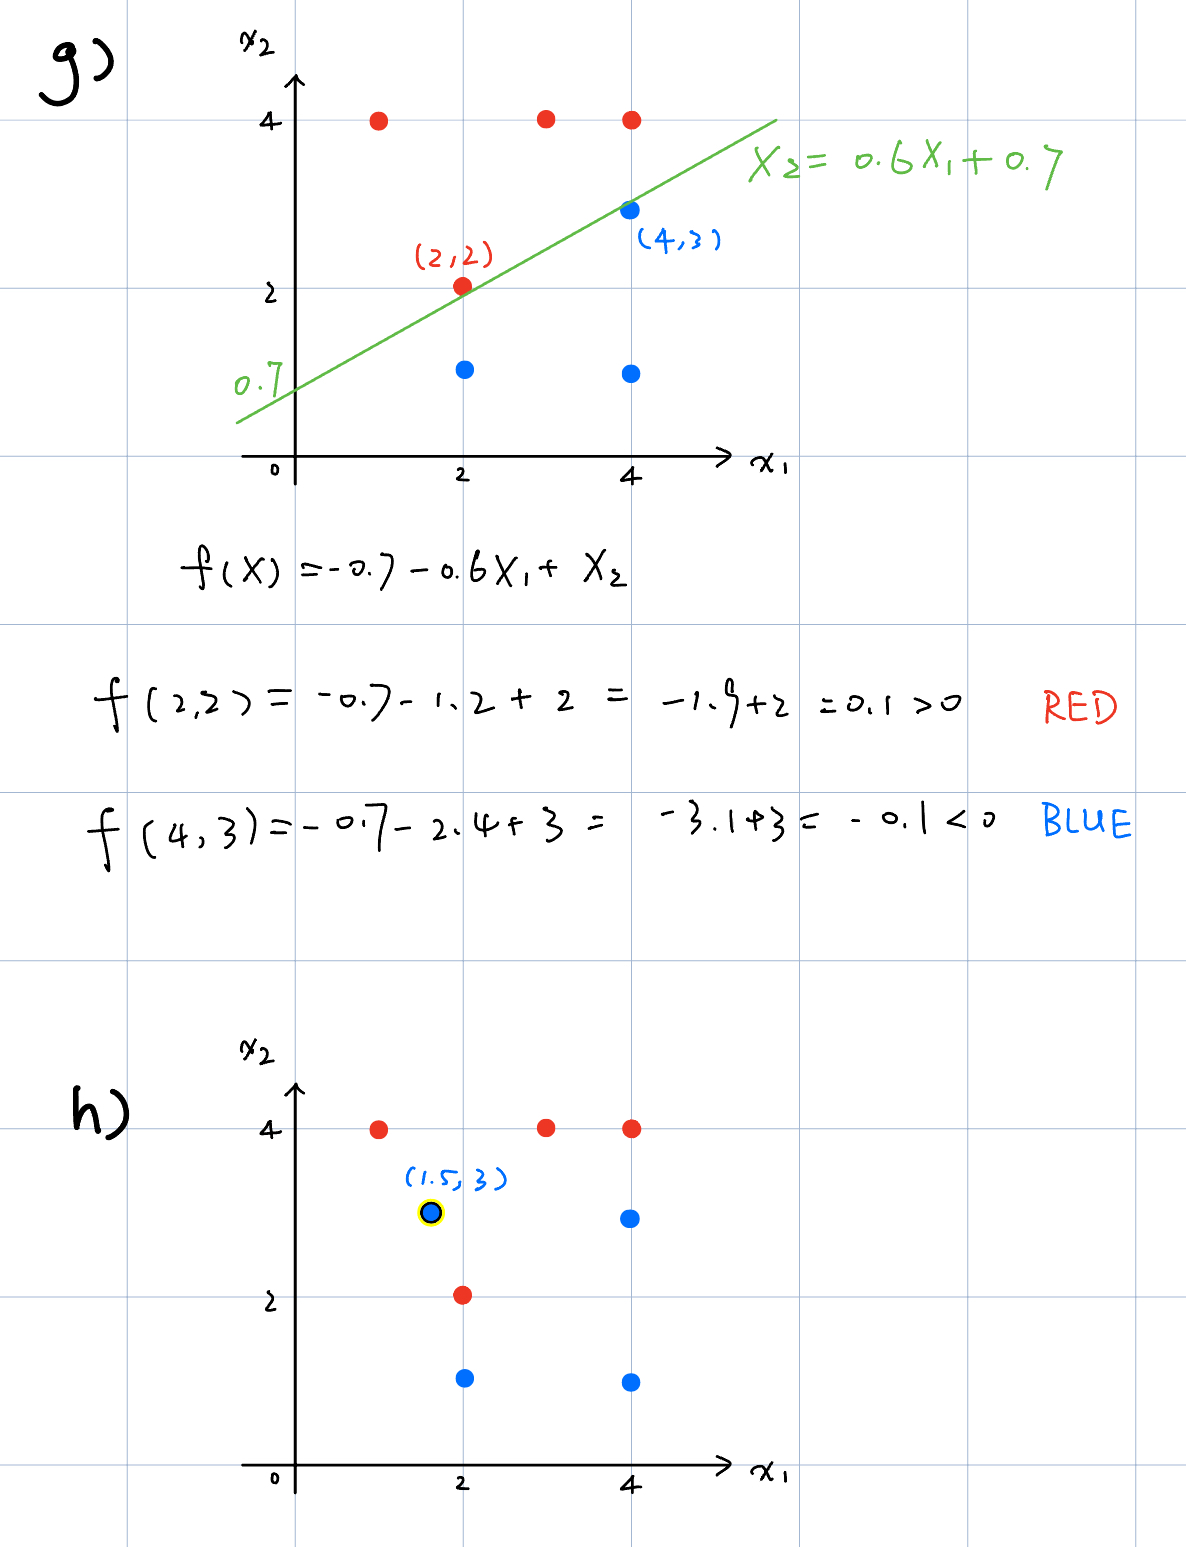 g)
x₂
4
X₂ = 0.6X₁ + 0.7
(4,3)
(2,2)
2
0.7
0
2
4
x₁
f(X) = -0.7 - 0.6X₁ + X₂
f(2,2) = -0.7 - 1.2 + 2 = -1.9+2 = 0.1 > 0 RED
f(4,3) = -0.7 - 2.4 + 3 = -3.1+3 = -0.1 < 0 BLUE
x₂
h)
4
(1.5, 3)
2
0
2
4
x₁